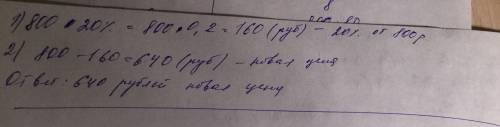 1) 800 • 20% = 800 • 0,2 = 160 (руб) – 20% от 800 р
2) 800 - 160 = 640 (руб) – новая цена
Ответ: 640 рублей новая цена